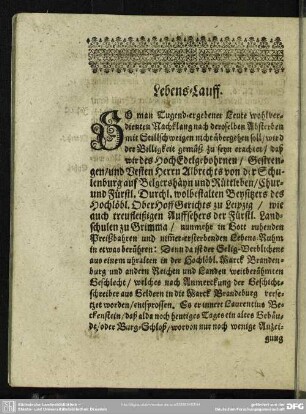 Lebens-Lauff.
SO man Tugend-ergebener Leute wohlver-
dienten Nachklang nach deroselben Absterben
mit Stillschweigen nicht übergehen soll/ wird
der Billigkeit gemäß zu seyn erachtet/ daß
wir des HochEdelgebohrnen/ Gestren-
gen/und Vesten Herrn Albrechts von der Schu-
lenburg auff Belgershayn und Rüttleben/Chur-
und Fürstl. Durchl. wolbestalten Beysitzers des
Hochlöbl. OberHoffGerichts zu Leipzig / wie
auch treufleißigen Auffsehers der Fürstl. Land-
schulen zu Grimma / nunmehr in Gott ruhenden
Preißbahren und nimmer-ersterbenden Lebens-Ruhm
in etwas berühren: Denn da ist der Selig-Verblichene
aus einem uhralten in der Hochlöbl. Marck Branden-
burg und andern Reichen und Landen weitberühmten
Geschlecht/ welches nach Anmerckung der Geschicht-
schreiber aus Geldern in die Marck Brandeburg verse-
tzet worden/entsprossen. Es erinnert Laurentius Pe-
ckenstein/daß alda noch heutiges Tages ein altes Gebäu-
de/oder Burg-Schloß/ worvon nur noch wenige Anzei-
gung